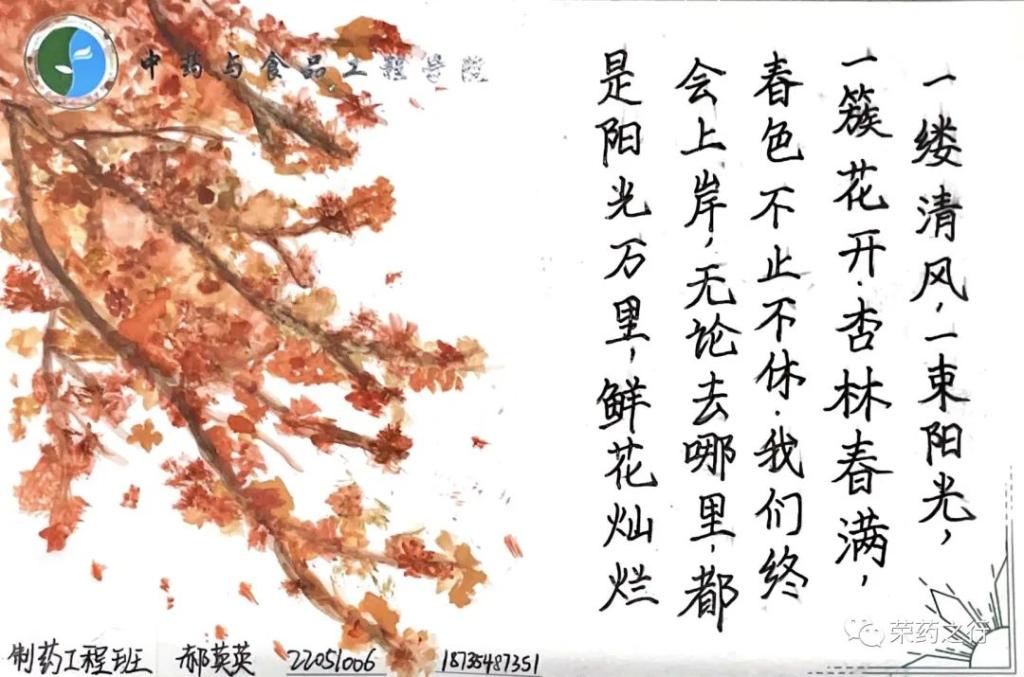 中药与食品工程学院
一缕清风，一束阳光，
一簇花开.杏林春满，
春色不止不休.我们终
会上岸，无论去哪里，都
是阳光万里，鲜花灿烂
制药工程班 郝英英 22051006 18735487351
荣药之行